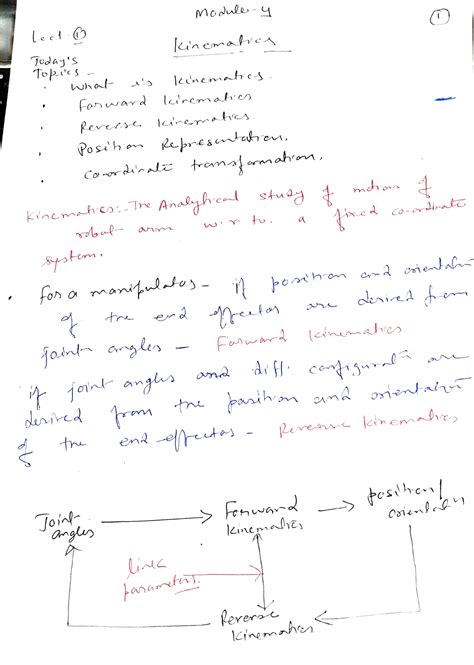 Module-4
①
Lect-①
Kinematics
Today's
Topics -
· What is Kinematics.
· Forward Kinematics
· Reverse Kinematics.
· Position Representation.
· Co-ordinate transformation.
Kinematics:- The Analytical study of motion of
robot arm w.r to. a fixed co-ordinate
system.
· For a manipulator - if position and orientatn
of the end effector are derived from
joint angles - Forward Kinematics
if joint angles and diff. configuratn are
derived from the position and orientatn
of the end-effector - Reverse Kinematics
Joint angles
Forward Kinematics
position/ orientatn
link parameters.
Reverse Kinematics